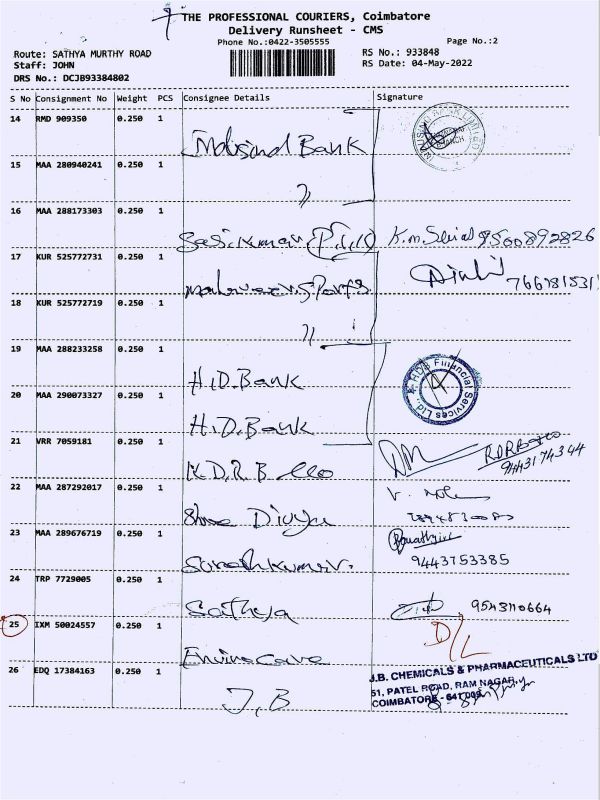 THE PROFESSIONAL COURIERS, Coimbatore
Delivery Runsheet - CMS
Phone No.:0422-3505555
Page No.:2
Route: SATHYA MURTHY ROAD
RS No.: 933848
Staff: JOHN
RS Date: 04-May-2022
DRS No.: DCJB93384802
S No Consignment No Weight PCS Consignee Details Signature
14 RMD 909350 0.250 1
Indusind Bank
15 MAA 280940241 0.250 1
〃
16 MAA 288173303 0.250 1
Sasikumar 9500892826
17 KUR 525772731 0.250 1
Sports
18 KUR 525772719 0.250 1
〃
19 MAA 288233258 0.250 1
H.D.Bank
HDB Financial Services Ltd.
20 MAA 290073327 0.250 1
H.D.Bank
21 VRR 7059181 0.250 1
K.D.R.B
9443174344
22 MAA 287292017 0.250 1
Shree Divya
23 MAA 289676719 0.250 1
Sureshkumar.
9443753385
24 TRP 7729005 0.250 1
Sathya
25 IXM 50024557 0.250 1
D/L
Enviro Care
26 EDQ 17384163 0.250 1
J.B
J.B. CHEMICALS & PHARMACEUTICALS LTD
51, PATEL ROAD, RAM NAGAR,
COIMBATORE - 641 009.